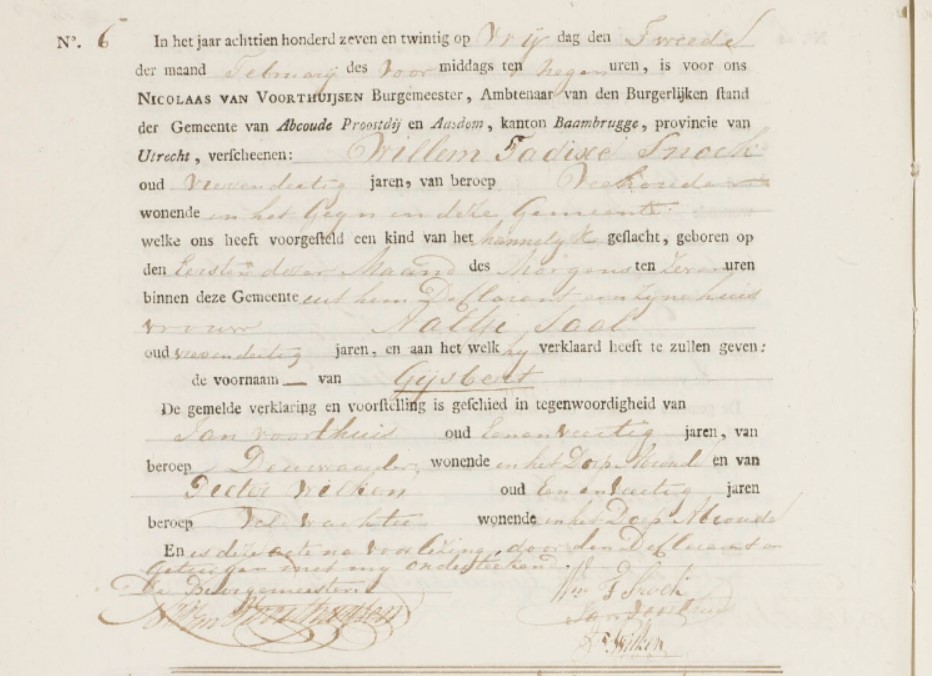 N°. 6 In het jaar achttien honderd zeven en twintig op Vrij dag den Tweede
der maand February des Voor middags ten negen uren, is voor ons
NICOLAAS VAN VOORTHUIJSEN Burgemeester, Ambtenaar van den Burgerlijken stand
der Gemeente van Abcoude Proostdij en Aasdom, kanton Baambrugge, provincie van
Utrecht, verscheenen: Willem Snoek
oud jaren, van beroep Veehouder
wonende in het Geyn in deze Gemeente
welke ons heeft voorgesteld een kind van het mannelyk geslacht, geboren op
den Eersten dezer Maand des Morgens ten Zeven uren
binnen deze Gemeente uit hem Declarant en zyne huis
vrouw Saal
oud jaren, en aan het welk hy verklaard heeft te zullen geven:
de voornaam — van Gijsbert
De gemelde verklaring en voorstelling is geschied in tegenwoordigheid van
Jan Voorthuis oud Eenenveertig jaren, van
beroep Deurwaarder wonende in het Dorp Abcoude en van
Pieter Wilken oud Eenenveertig jaren
beroep Veldwachter wonende in het Dorp Abcoude
En is deze acte na voorlezing, door den Declarant en
getuigen met my onderteekend.
De Burgemeester Wm F Snoek
NVan Voorthuysen Jan Voorthuis
P Wilken